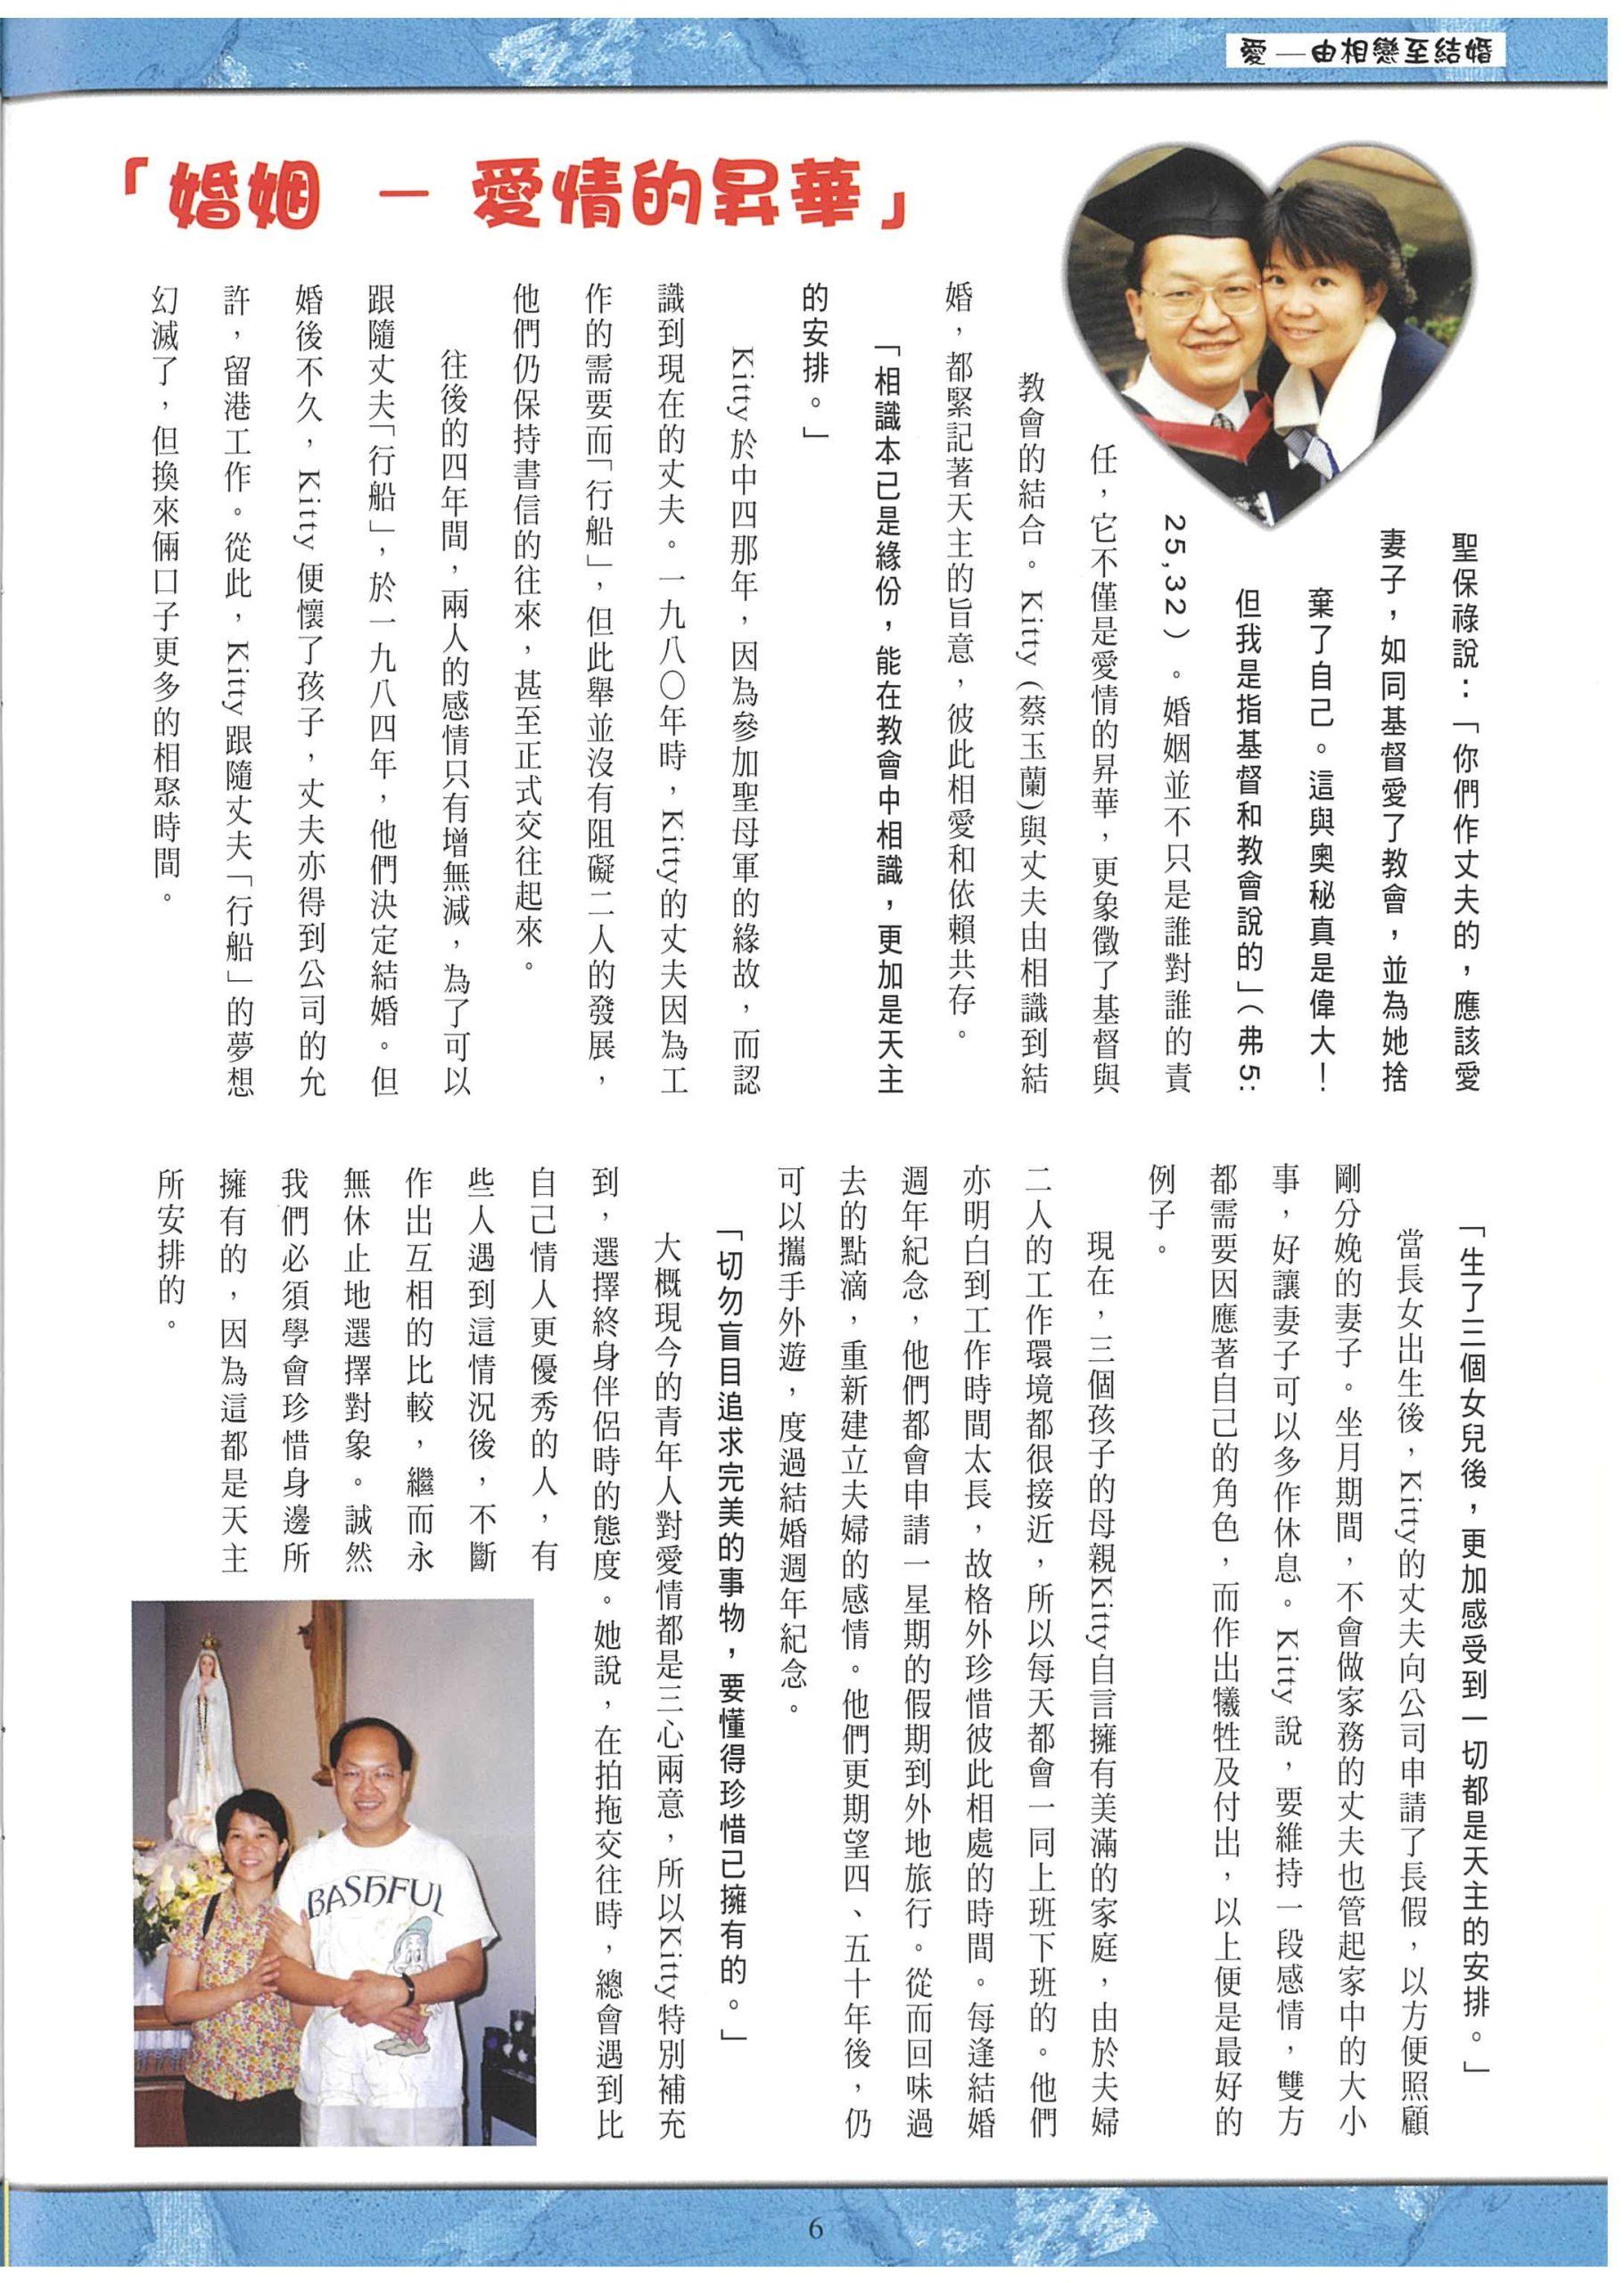 愛—由相戀至結婚
「婚姻 － 愛情的昇華」
聖保祿說：「你們作丈夫的，應該愛
妻子，如同基督愛了教會，並為她捨
棄了自己。這與奧秘真是偉大！
但我是指基督和教會說的」（弗5:
25,32）。婚姻並不只是誰對誰的責
任，它不僅是愛情的昇華，更象徵了基督與
教會的結合。Kitty(蔡玉蘭)與丈夫由相識到結
婚，都緊記著天主的旨意，彼此相愛和依賴共存。
「相識本已是緣份，能在教會中相識，更加是天主
的安排。」
Kitty於中四那年，因為參加聖母軍的緣故，而認
識到現在的丈夫。一九八〇年時，Kitty的丈夫因為工
作的需要而「行船」，但此舉並沒有阻礙二人的發展，
他們仍保持書信的往來，甚至正式交往起來。
往後的四年間，兩人的感情只有增無減，為了可以
跟隨丈夫「行船」，於一九八四年，他們決定結婚。但
婚後不久，Kitty便懷了孩子，丈夫亦得到公司的允
許，留港工作。從此，Kitty跟隨丈夫「行船」的夢想
幻滅了，但換來倆口子更多的相聚時間。
「生了三個女兒後，更加感受到一切都是天主的安排。」
當長女出生後，Kitty的丈夫向公司申請了長假，以方便照顧
剛分娩的妻子。坐月期間，不會做家務的丈夫也管起家中的大小
事，好讓妻子可以多作休息。Kitty說，要維持一段感情，雙方
都需要因應著自己的角色，而作出犧牲及付出，以上便是最好的
例子。
現在，三個孩子的母親Kitty自言擁有美滿的家庭，由於夫婦
二人的工作環境都很接近，所以每天都會一同上班下班的。他們
亦明白到工作時間太長，故格外珍惜彼此相處的時間。每逢結婚
週年紀念，他們都會申請一星期的假期到外地旅行。從而回味過
去的點滴，重新建立夫婦的感情。他們更期望四、五十年後，仍
可以攜手外遊，度過結婚週年紀念。
「切勿盲目追求完美的事物，要懂得珍惜已擁有的。」
大概現今的青年人對愛情都是三心兩意，所以Kitty特別補充
到，選擇終身伴侶時的態度。她說，在拍拖交往時，總會遇到比
自己情人更優秀的人，有
些人遇到這情況後，不斷
作出互相的比較，繼而永
無休止地選擇對象。誠然
我們必須學會珍惜身邊所
擁有的，因為這都是天主
所安排的。
BASHFUL
6